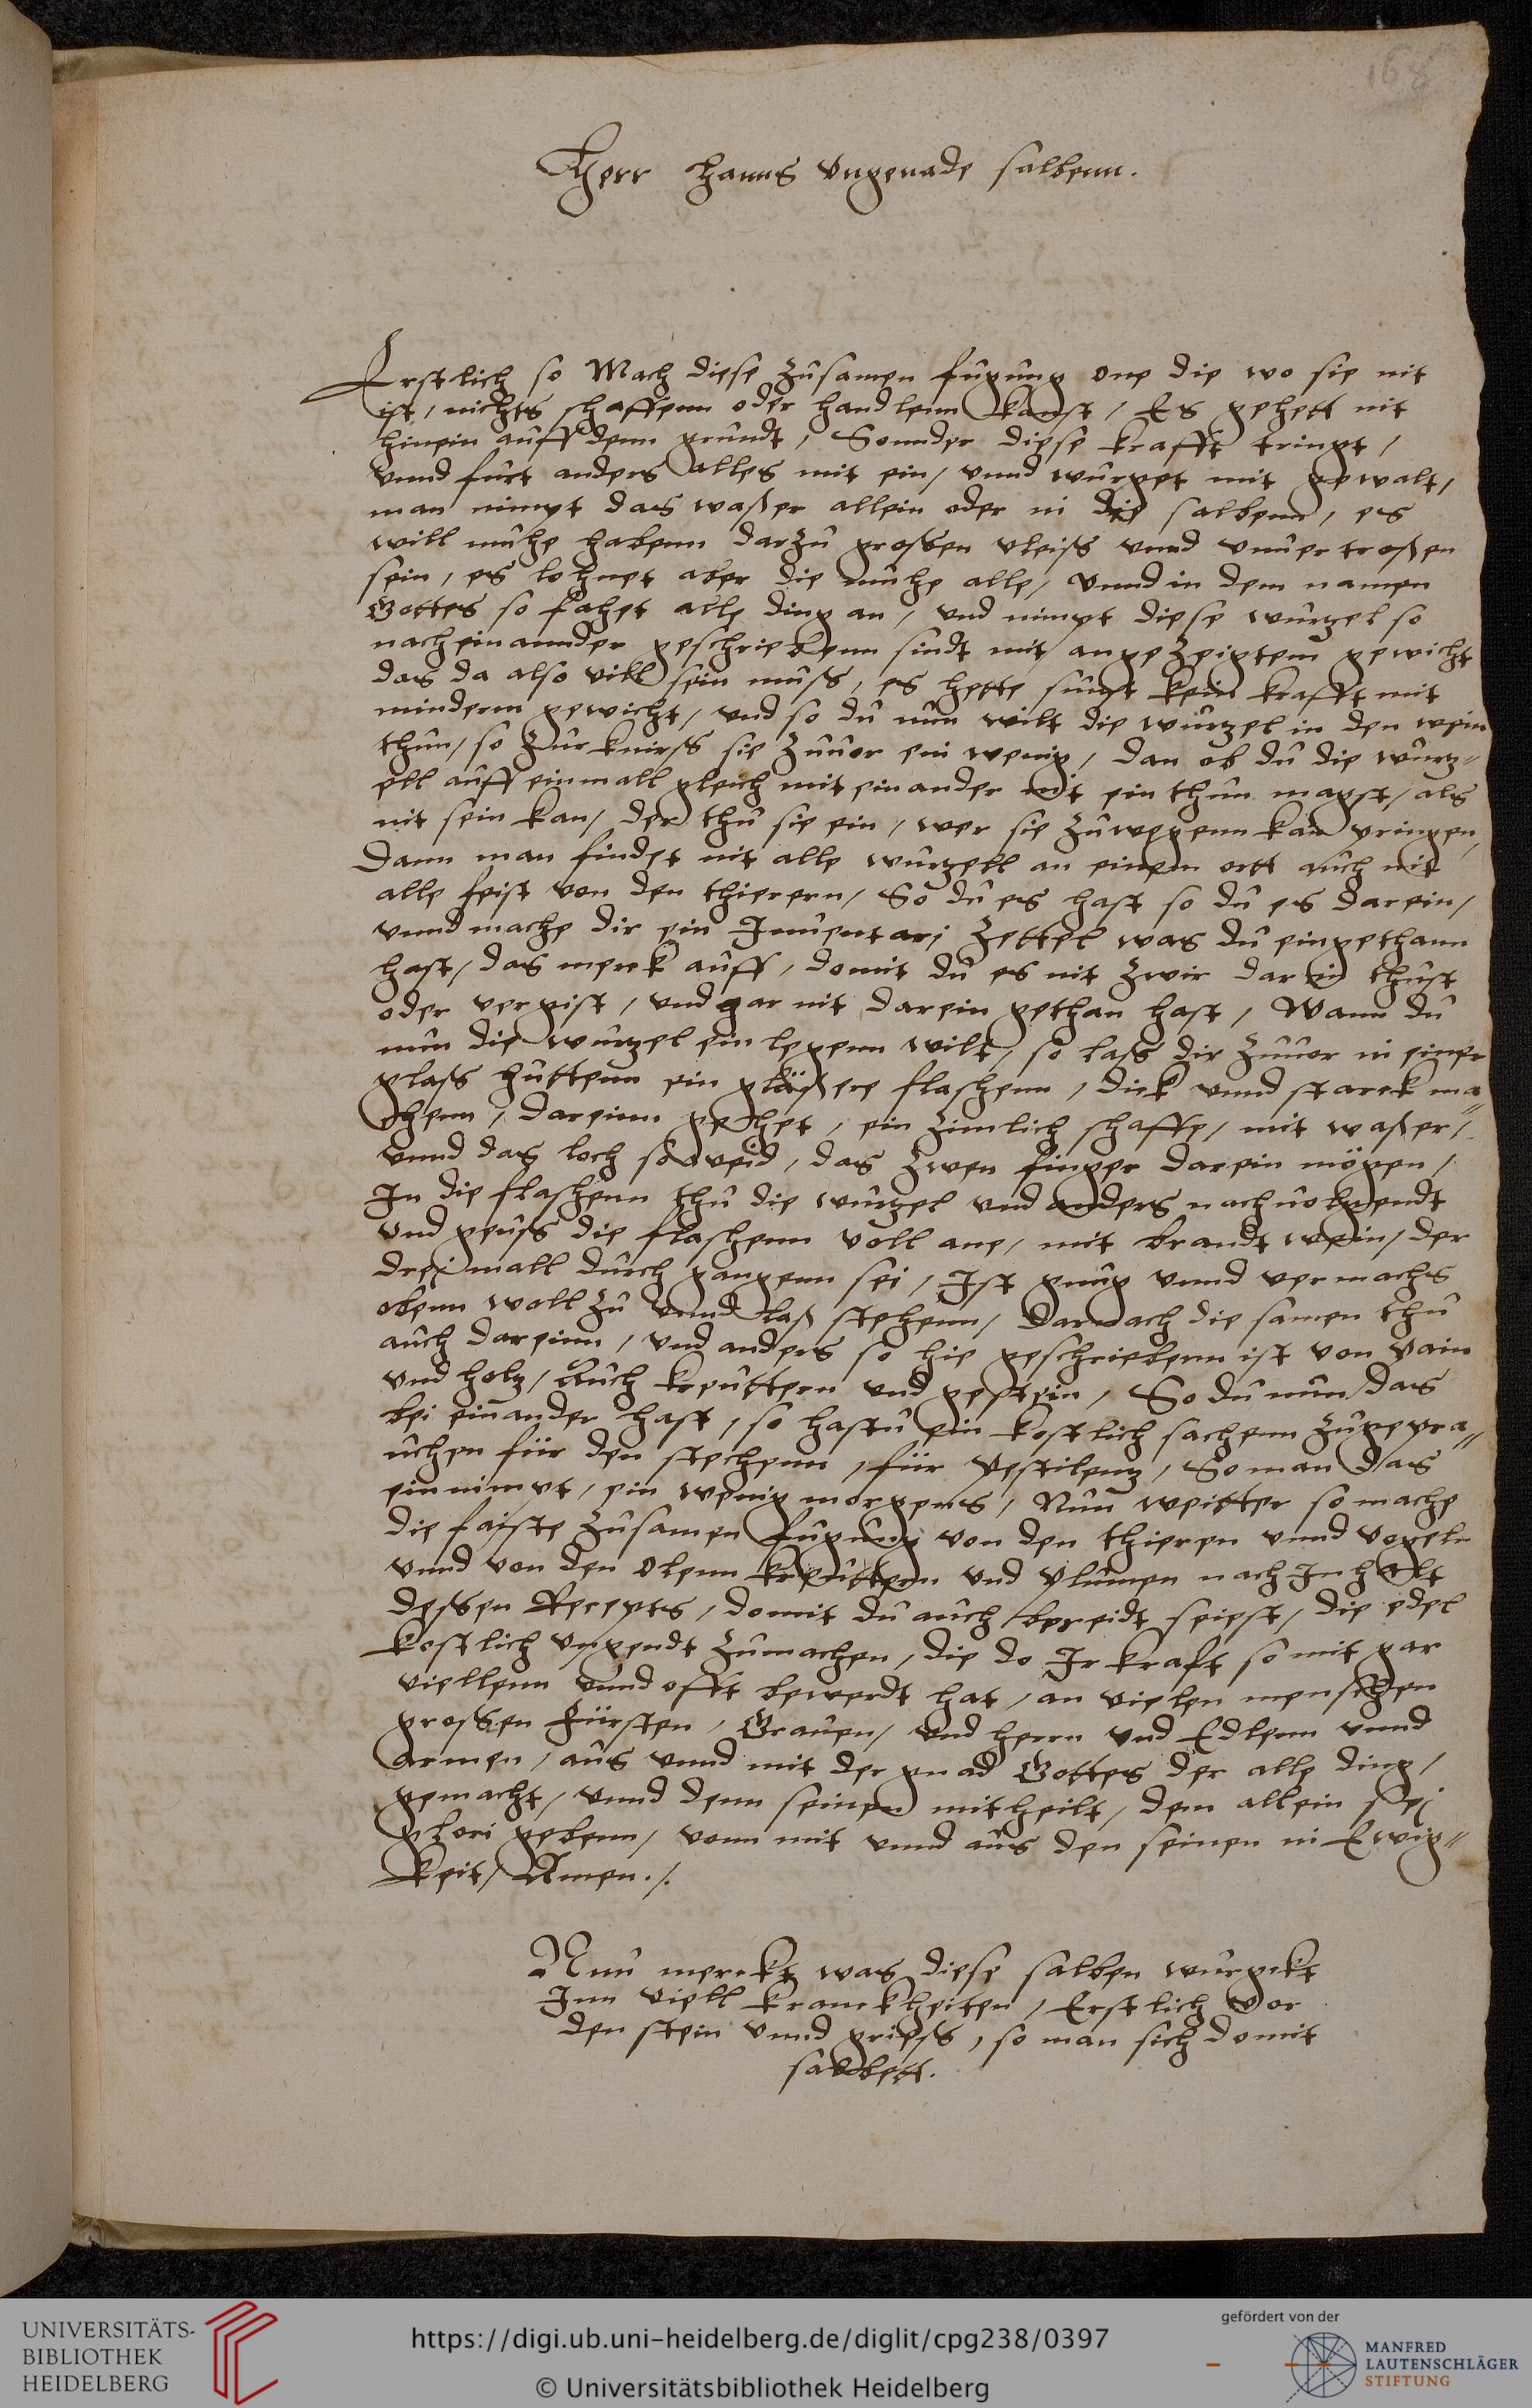 168
Herr Hanns Ungenade salbenn.
Erstlich so Mach diese zusamen fugung one die wo sie nit
ist, nichts schaffenn oder handlenn kanst, Es gehett nit
hinein auff denn grundt, Sonnder diese krafft tringt,
vnnd furt anders alles mit ein, vnnd wurget mit gewalt,
man nimpt das waßer allein oder in die salbenn, es
will muhe habenn darzu großen vleiß vnnd vnuertroßen
sein, es lohnet aber die muhe alle, vnnd in dem namen
Gottes so fahet alle ding an, vnd nimpt diese wurzel so
nacheinannder geschriebenn sindt mit angezeigtem gewicht
das da also vill sein muß, es hette sunst kein krafft mit
minderm gewicht, vnd so du nun wilt die wurzel in den wein
thun, so zurknirß sie zuuor ein wenig, dan ob du die wurtz-
ell auff einmall gleich mit einander nit ein thun magst, als
nit sein kan, der thu sie ein, wer sie zuwegenn kan pringen,
Dann man findet nit alle wurzell an einem ortt auch nit
alle feist von den thierern, So du es hast so du es darein,
vnnd mache dir ein Inuentarj zettel was du eingethann
hast, das merck auff, domit du es nit zwir darin thust
oder vergist, vnd gar nit darein gethan hast, Wann du
nun die wurzel ein legenn wilt, so laß dir zuuor in einer
glaß huttenn ein gläßere flaschenn, dick vnnd starck ma-
chenn, dareinn gehet, ein zimlich schaffe, mit waßer,
vnnd das loch so weid, das zwen finger darein mögen,
In die flaschenn thu die wurzel vnd anders nachuolgendt
vnd geuß die flaschenn voll ane, mit brandt wein, der
dreimall durch gangenn sei, Ist gnug vnnd vermachs
obenn woll zu vnnd laß stehenn, Darnach die samen thu
auch dareinn, vnd anders so hie geschriebenn ist von pain
vnd holz, Auch kreuttern vnd gestein, So du nun das
bei einander hast, so hastu ein kostlich sachenn zugepra-
uchen für den stechenn, für Pestilenz, So man das
einnimpt, ein wenig morgens, Nun weitter so mache
die faiste zusamen fugung von den thieren vnnd vogeln
vnnd von den olenn kreuttern vnd plumen nach Inhalt
dessen Recepts, domit du auch bereidt seiest, die edel
kostlich vngendt zumachen, die do Ir kraft so mit gar
viellenn vnnd offt bewerdt hat, an vielen menschen
großen Fürsten, Grauen, vnd herrn vnd Edlenn vnnd
armen, aus vnnd mit der gnad Gottes der alle ding,
gemacht, vnnd denn seinen mitheilt, dem allein sej
glori gebenn, vonn mit vnnd aus den seinen in Ewig-
keit, Amen ./.
Nun merckt was diese salben wurgckt
Inn viell kranckheiten, Erstlich vor
den stein vnnd grieß, so man sich domit
salbett.
UNIVERSITÄTS-
BIBLIOTHEK
HEIDELBERG
https://digi.ub.uni-heidelberg.de/diglit/cpg238/0397
© Universitätsbibliothek Heidelberg
gefördert von der
MANFRED
LAUTENSCHLÄGER
STIFTUNG